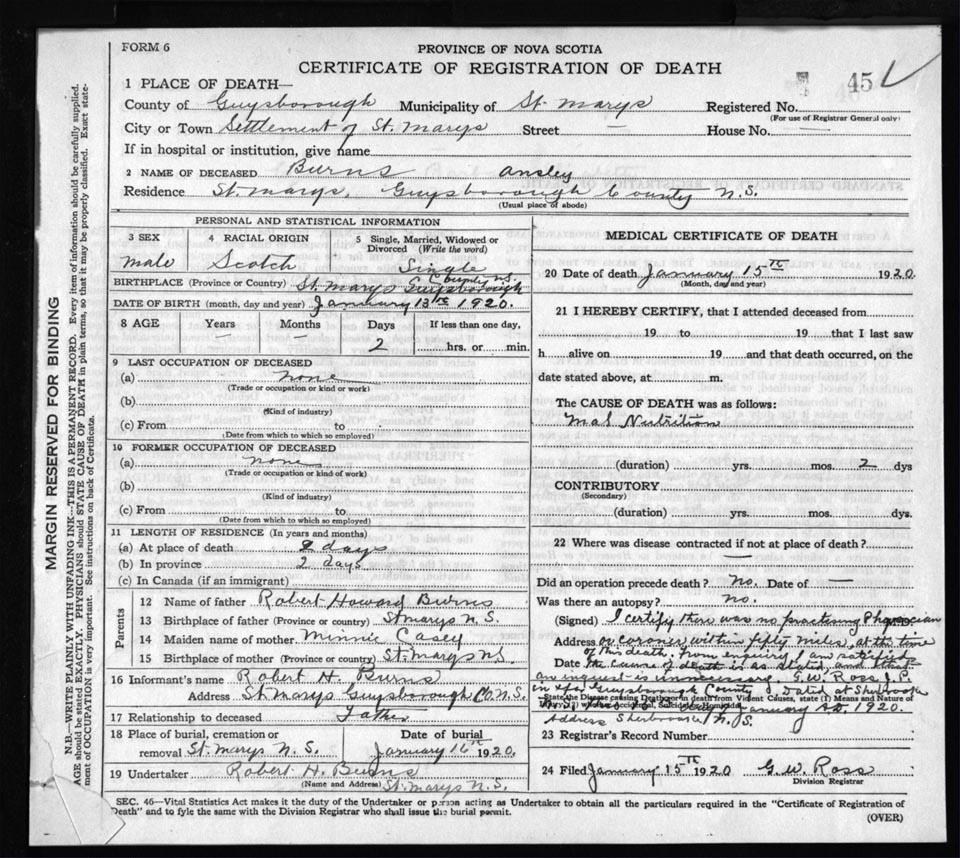 FORM 6
PROVINCE OF NOVA SCOTIA
CERTIFICATE OF REGISTRATION OF DEATH
45
1 PLACE OF DEATH—
County of Guysborough Municipality of St. Marys Registered No.
(For use of Registrar General only)
City or Town Settlement of St. Marys Street — House No. —
If in hospital or institution, give name
2 NAME OF DECEASED Burns Ansley
Residence St. Marys, Guysborough County N.S.
(Usual place of abode)
PERSONAL AND STATISTICAL INFORMATION
3 SEX 4 RACIAL ORIGIN 5 Single, Married, Widowed or Divorced (Write the word)
male Scotch Single
BIRTHPLACE (Province or Country) St. Marys Guysborough County N.S.
DATE OF BIRTH (month, day and year) January 13th 1920.
8 AGE Years Months Days If less than one day,
— — 2 hrs. or min.
9 LAST OCCUPATION OF DECEASED
(a) none
(Trade or occupation or kind or work)
(b)
(Kind of industry)
(c) From to
(Date from which to which so employed)
10 FORMER OCCUPATION OF DECEASED
(a) none
(Trade or occupation or kind of work)
(b)
(Kind of industry)
(c) From to
(Date from which to which so employed)
11 LENGTH OF RESIDENCE (In years and months)
(a) At place of death 2 days
(b) In province 2 days
(c) In Canada (if an immigrant)
Parents
12 Name of father Robert Howard Burns
13 Birthplace of father (Province or country) St Marys N.S.
14 Maiden name of mother Minnie Casey
15 Birthplace of mother (Province or country) St. Marys N.S.
16 Informant's name Robert H. Burns
Address St. Marys Guysborough Co. N.S.
17 Relationship to deceased Father
18 Place of burial, cremation or removal St. Marys N. S. Date of burial January 16th 1920.
19 Undertaker Robert H. Burns
(Name and Address) St. Marys N.S.
MEDICAL CERTIFICATE OF DEATH
20 Date of death January 15th 1920.
(Month, day and year)
21 I HEREBY CERTIFY, that I attended deceased from
19 to 19 that I last saw
h alive on 19 and that death occurred, on the
date stated above, at m.
The CAUSE OF DEATH was as follows:
Mal Nutrition
(duration) yrs. mos. 2 dys
CONTRIBUTORY
(Secondary)
(duration) yrs. mos. dys.
22 Where was disease contracted if not at place of death?
—
Did an operation precede death? no. Date of —
Was there an autopsy? no.
(Signed) I certify there was no practising Physician
Address or coroner within fifty miles, at the time
of this death. From enquiry I am satisfied
Date the cause of death is as stated, and that
an inquest is unnecessary. G.W. Ross J.P.
in & for Guysborough County Dated at Sherbrooke
State the Disease causing Death or in death from Violent Causes, state (1) Means and Nature of Injury (2) whether Accidental, Suicidal or Homicidal
January 1920.
Address Sherbrooke N. S.
23 Registrar's Record Number
24 Filed January 15th 1920 G.W. Ross
Division Registrar
SEC. 46—Vital Statistics Act makes it the duty of the Undertaker or person acting as Undertaker to obtain all the particulars required in the "Certificate of Registration of
Death" and to fyle the same with the Division Registrar who shall issue the burial permit.
(OVER)
MARGIN RESERVED FOR BINDING
N.B.—WRITE PLAINLY WITH UNFADING INK—THIS IS A PERMANENT RECORD. Every item of information should be carefully supplied.
AGE should be stated EXACTLY. PHYSICIANS should STATE CAUSE OF DEATH in plain terms, so that it may be properly classified. Exact state-
ment of OCCUPATION is very important. See instructions on back of Certificate.